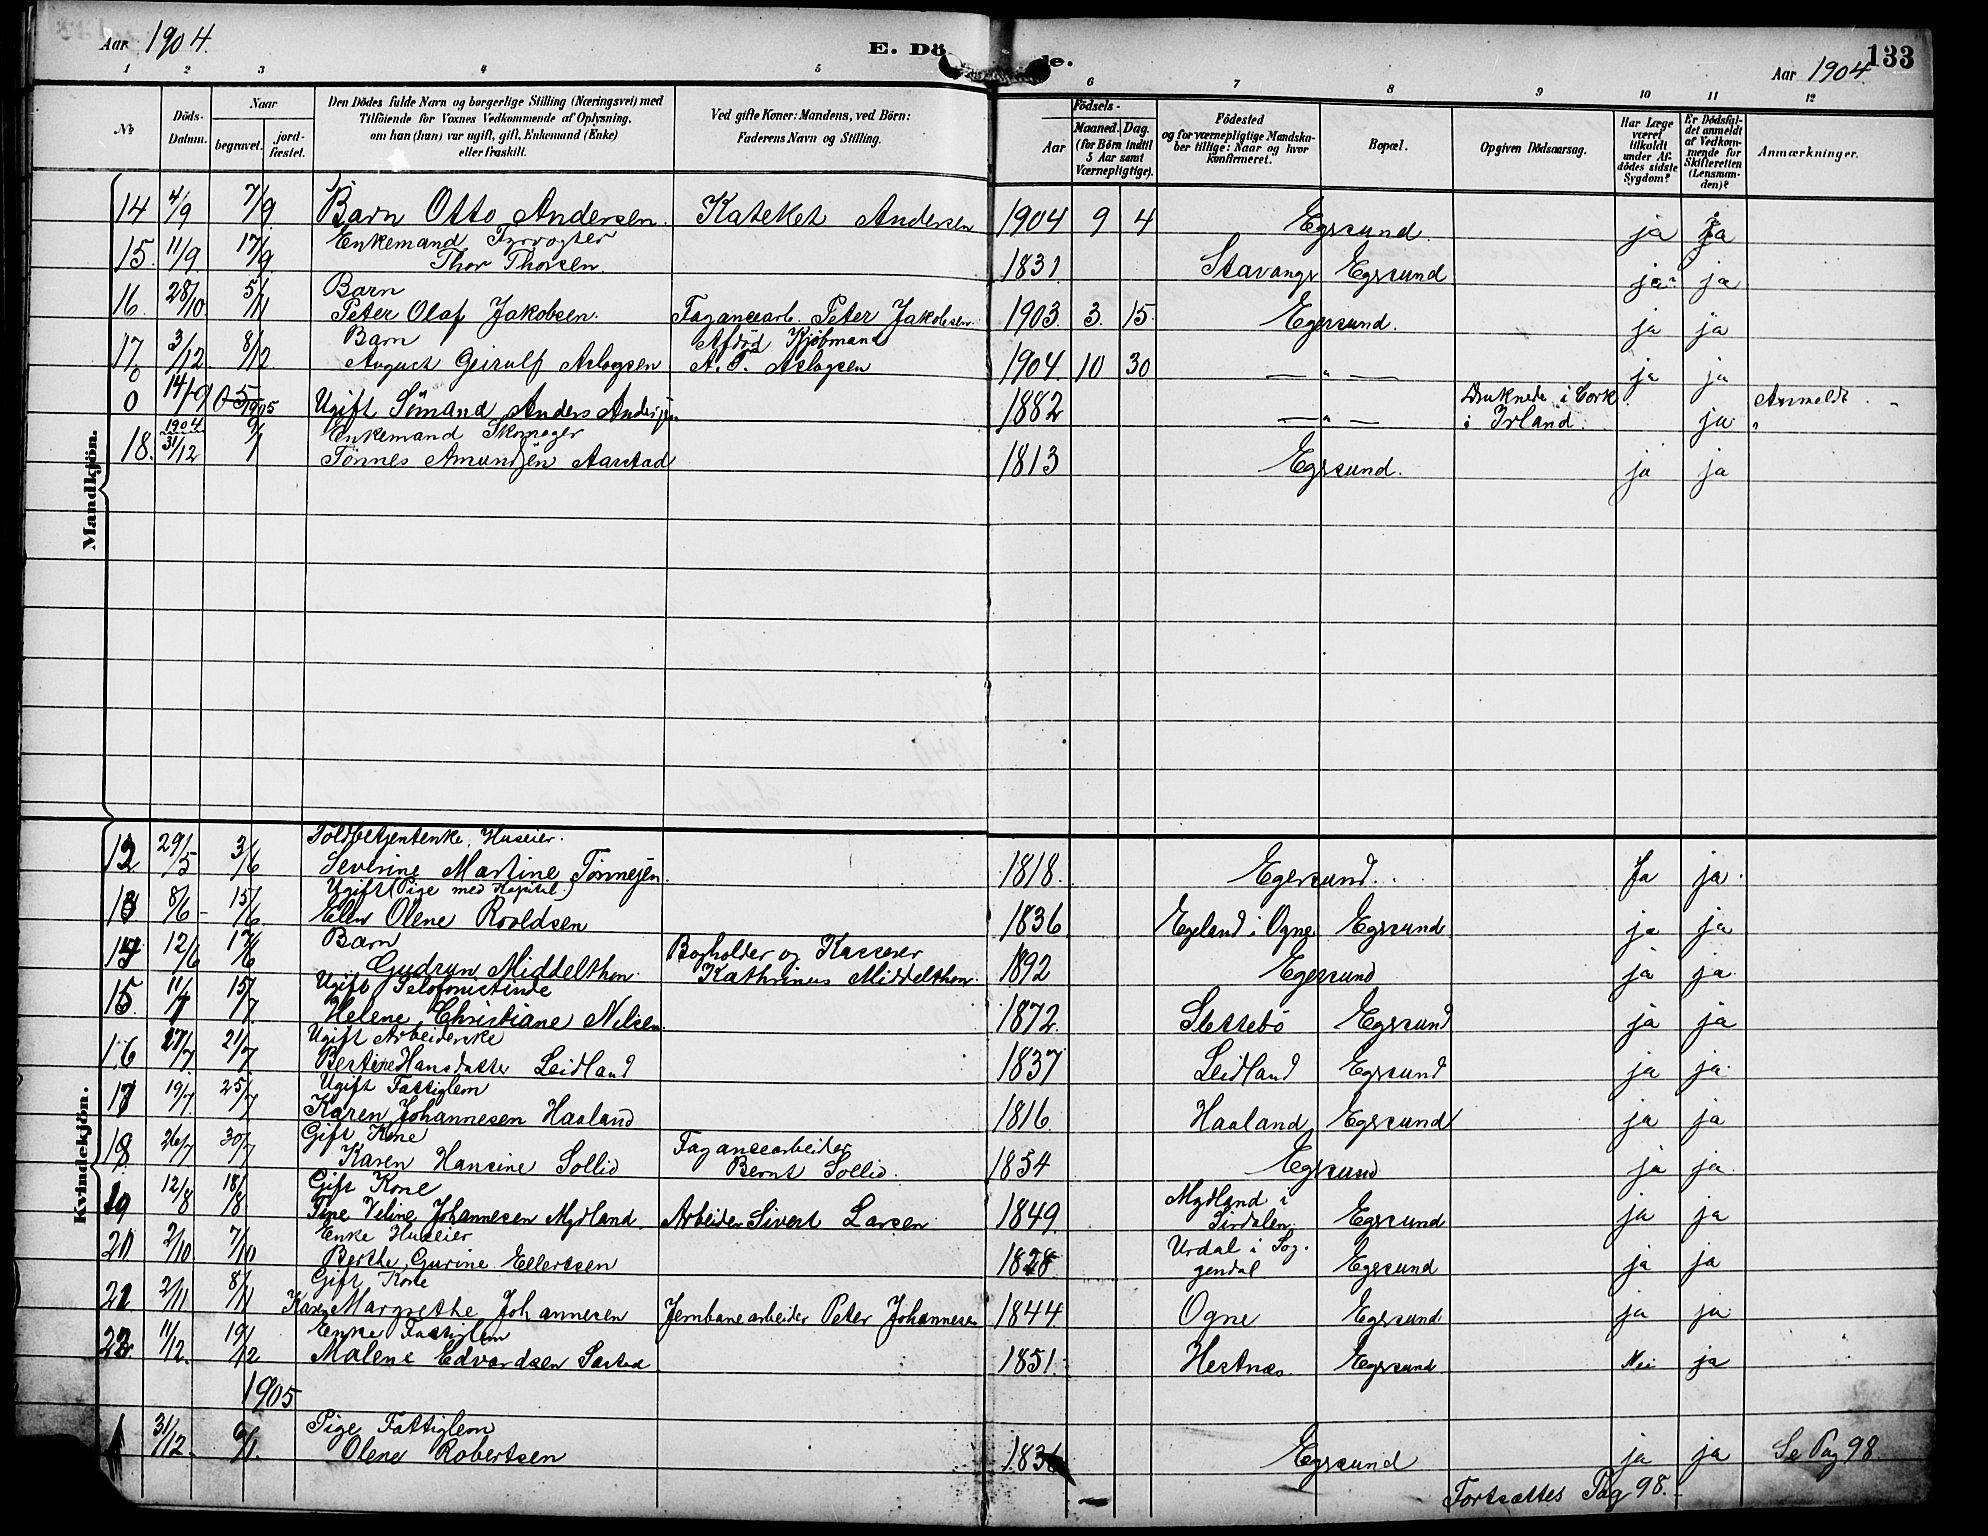 Aar 1904. E. Dö de. 133
Aar 1904
1 2 3 4 5 6 7 8 9 10 11 12
No
Döds-Datum.
Naar
begravet.
jord-fæstet.
Den Dödes fulde Navn og borgerlige Stilling (Næringsvei) med
Tilföiende for Voxnes Vedkommende af Oplysning,
om han (hun) var ugift, gift, Enkemand (Enke)
eller fraskilt.
Ved gifte Koner: Mandens, ved Börn:
Faderens Navn og Stilling.
Födsels-
Aar
Maaned. Dag.
(for Börn indtil
5 Aar samt
Værnepligtige).
Födested
og for værnepligtige Mandska-
ber tillige: Naar og hvor
konfirmeret.
Bopæl.
Opgiven Dödsaarsag.
Har Læge
været
tilkaldt
under Af-
dödes sidste
Sygdom?
Er Dödsfal-
det anmeldt
af Vedkom-
mende for
Skifteretten
(Lensman-
den)?
Anmærkninger.
Mandkjön.
14 4/9 7/9 Barn Otto Andersen. Kateket Andersen 1904 9 4 Egersund. ja ja
Enkemand Fyrvogter
15. 11/9. 17/9. Thor Thorsen. 1831. Stavanger Egersund ja ja
Barn
16. 28/10 5/11 Peter Olaf Jakobsen. Fayancearb. Peter Jakobsen. 1903. 3. 15. Egersund. ja ja
Barn Afdöd Kjöbmand
17. 3/12. 8/12. August Geirulf Aslagsen A. T. Aslagsen 1904. 10 30 — " — ja ja
0 14/9 1905 Ugift Sömand Anders Andersen 1882 — " — Druknede i Cork Anmeldt
i Irland. ja "
1904 Enkemand Skomager
18. 31/12 Tönnes Amundsen Aarstad 1813 Egersund. ja ja
Kvindekjön.
Toldbetjentenke, Huseier.
12 29/5 3/6 Severine Martine Tönnesen. 1818. Egersund. Ja ja.
Ugift (Pige med Kapital.)
13 8/6 15/6 Elen Olene Roaldsen 1836 Egeland i Ogne Egersund. ja ja
Barn Bogholder og Kasserer
14 12/6 17/6 Gudrun Middelthon. Kathrinus Middelthon. 1892 Egersund ja ja.
Ugift Telefonistinde
15. 11/7 15/7 Helene Christiane Nilsen. 1872. Slettebö Egersund ja ja
Ugift Arbeiderske
16 17/7. 21/7 Bertine Hansdatter Leidland 1837 Leidland Egersund ja ja.
Ugift Fattiglem
17 19/7. 25/7 Karen Johannesen Haaland 1816. Haaland Egersund ja ja
Gift Kone Fayancearbeider
18. 26/7 30/7 Karen Hansine Sollid Bernt Sollid. 1854 Egersund ja ja.
Gift Kone Mydland i
19 12/8 18/8 Tine Veline Johannesen Mydland. Arbeider Sivert Larsen 1849. Sirdalen. Egersund ja ja
Enke Huseier Urdal i Sog-
20 2/10. 7/10 Berthe Gurine Ellertsen 1828 gendal Egersund ja ja
Gift Kone
21 2/11 8/11 Karen Margrethe Johannesen Jernbanearbeider Peter Johannesen 1844. Ogne Egersund ja ja
Enke Fattiglem
22. 11/12. 19/12 Malene Edvardsen 1851. Hestnæs. Egersund. Nei ja
1905
Pige Fattiglem
1 31/12. Olene Robertsen 1836 Egersund ja ja Se Pag 98.
Fortsættes Pag 98.